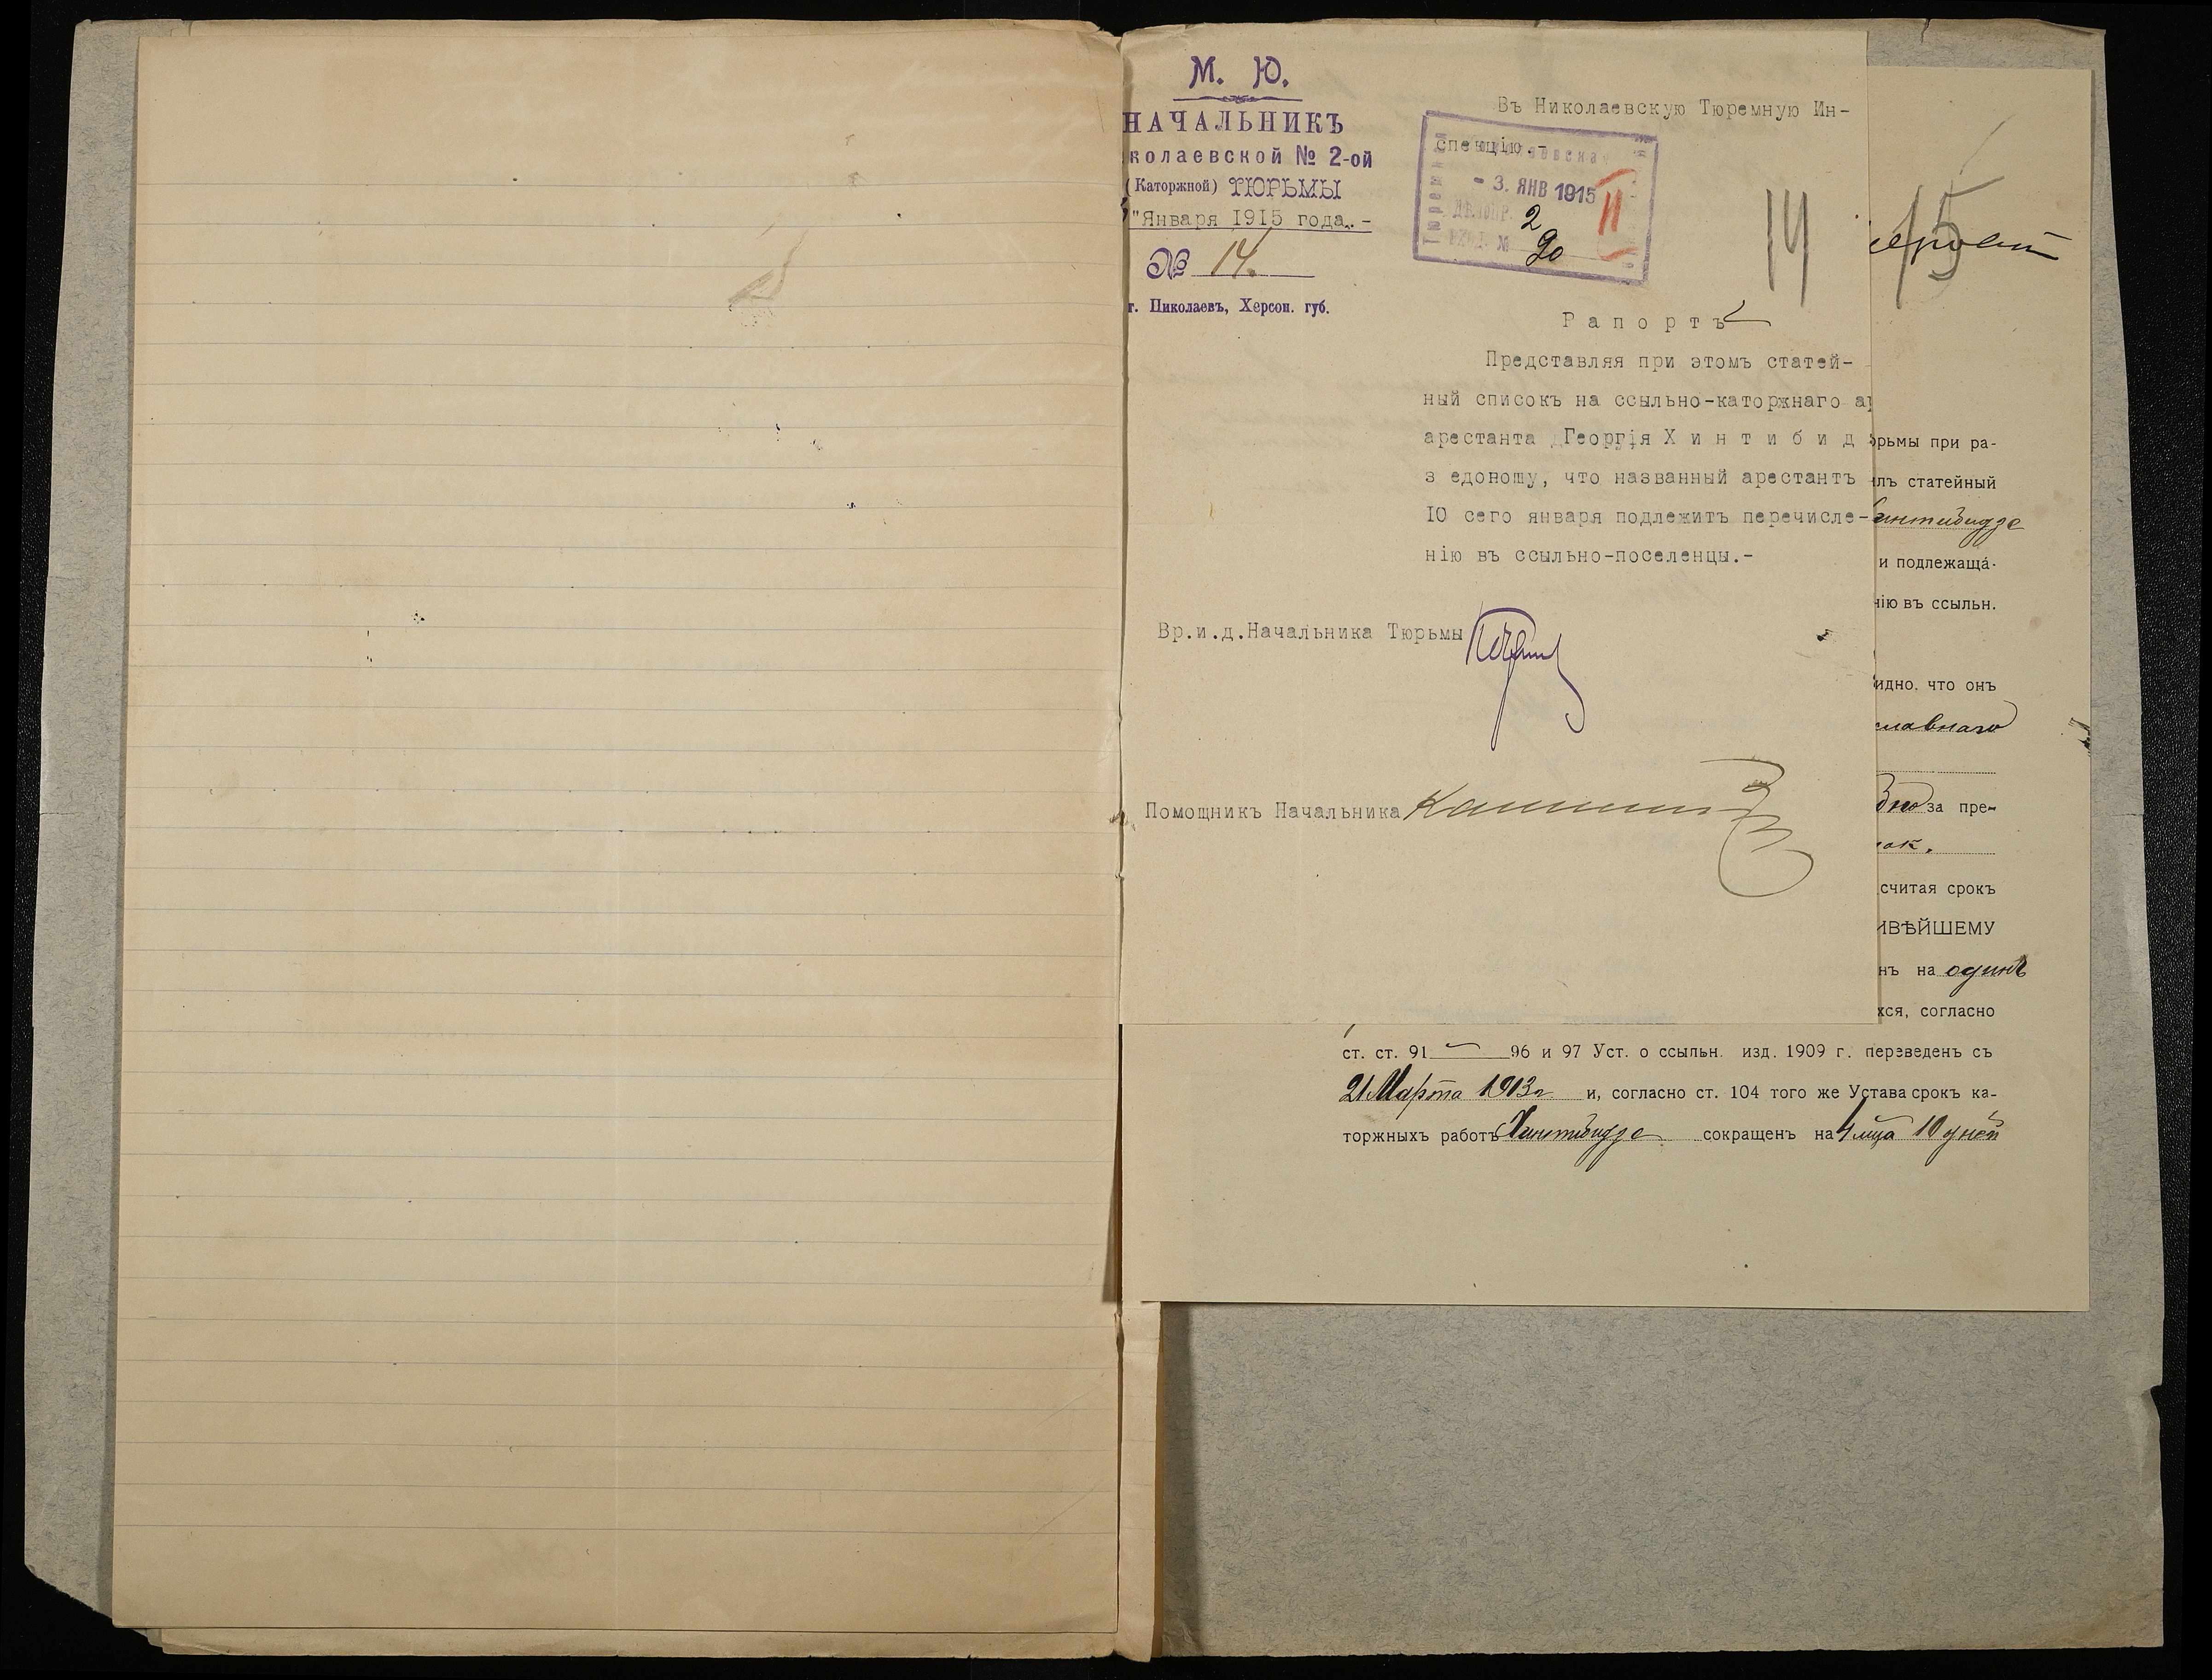 М. Ю.
НАЧАЛЬНИКЪ
колаевской № 2-ой
(Каторжной) ТЮРЬМЫ
"Января 1915 года.-
№ 14.
г. Николаевъ, Херсон. губ.
Въ Николаевскую Тюремную Ин-
спекцію.-
- 3. ЯНВ 1915
II
2
№ 90
14
15
Рапортъ
Представляя при этомъ статей-
ный списокъ на ссыльно-каторжнаго ар
арестанта Георгія Х и н т и б и д
з едоношу, что названный арестантъ
10 сего января подлежитъ перечисле-
нію въ ссыльно-поселенцы.-
Вр.и.д.Начальника Тюрьмы
Помощникъ Начальника
юрьмы при ра-
илъ статейный
интибидзе
и подлежаща-
нію въ ссыльн.
идно, что онъ
славнаго
за пре-
считая срокъ
ИВѢЙШЕМУ
нъ на одинъ
хся, согласно
ст. ст. 91 96 и 97 Уст. о ссыльн. изд. 1909 г. переведенъ съ
21 Марта 1913 г и, согласно ст. 104 того же Устава срокъ ка-
торжныхъ работъ Хинтибидзе сокращенъ на 4 мца 10 дней